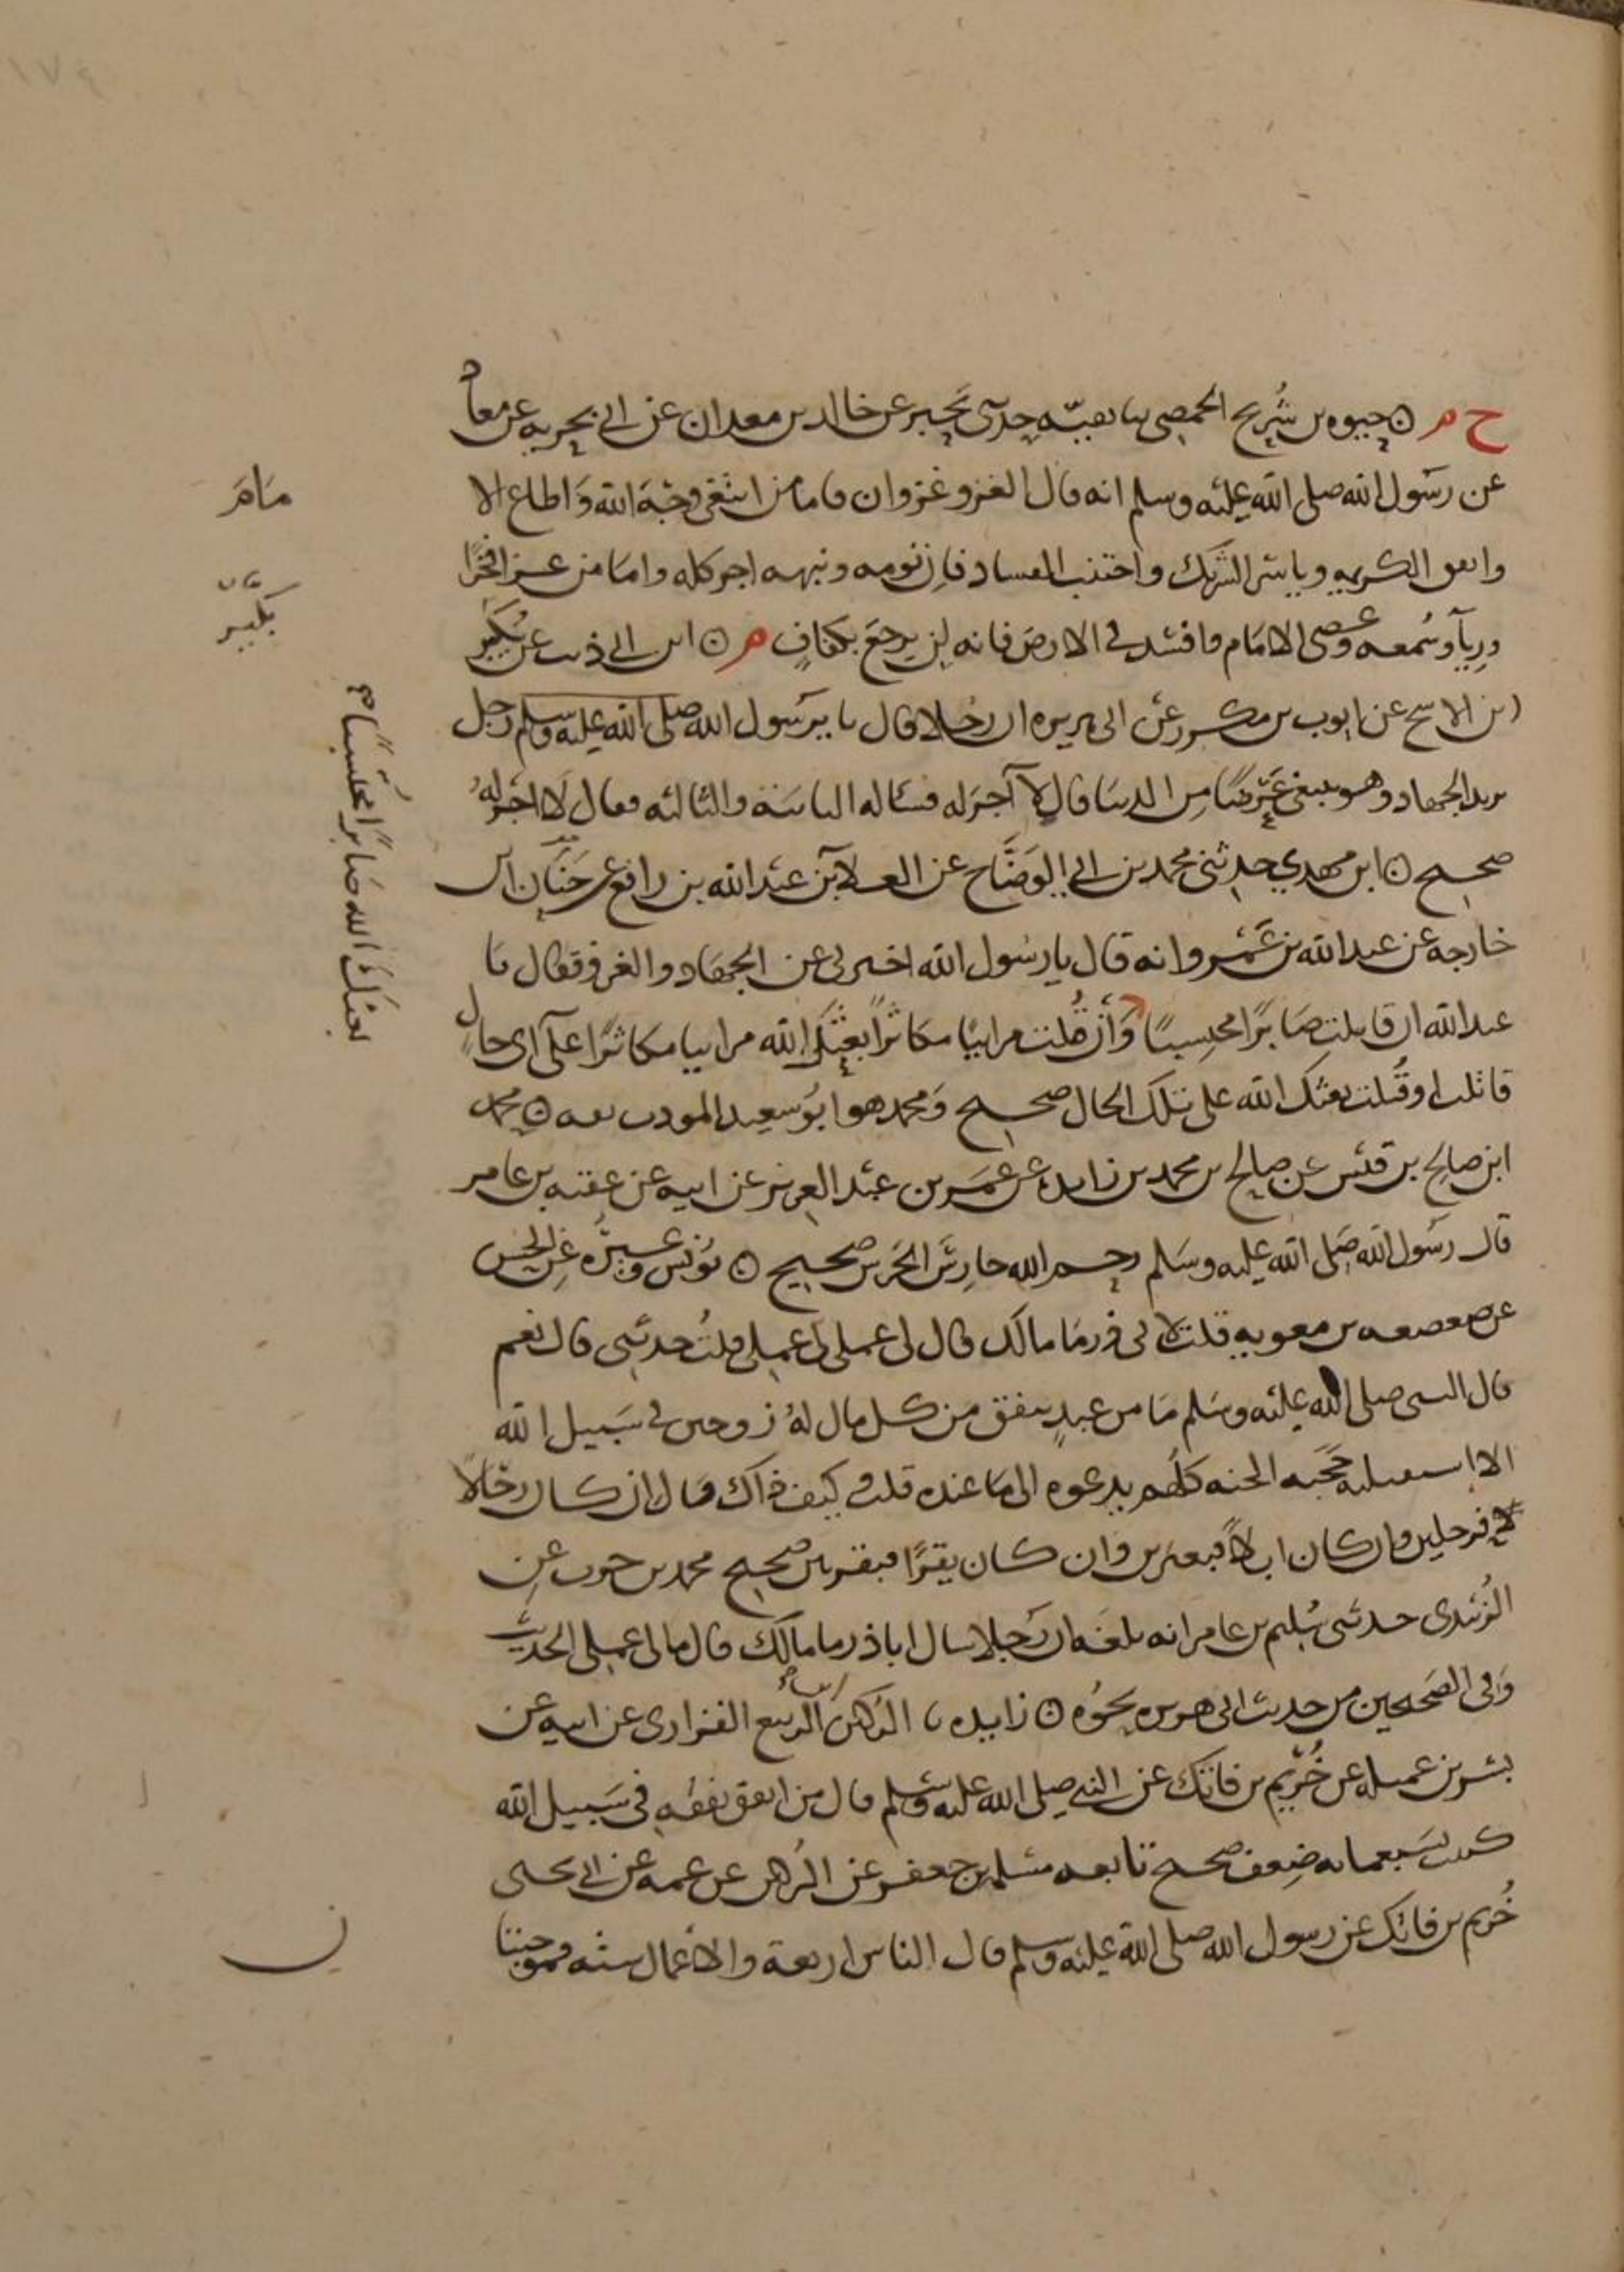 ح م ۞ حيوه بن شريح الحمصي ثنا بقيّه حدثني بحير عن خالد بن معدان عن ابي بحريه عن معاذ
عن رسول الله صلى الله عليه وسلم انه قال الغزو غزوان فاما من ابتغى وجه الله واطاع الا
مام
وانفق الكريمه وياسر الشريك واجتنب الفساد فان نومه ونبهه اجر كله واما من غزا فخرا
ورياً وسمعه وعصى الامام وافسد في الارض فانه لن يرجع بكفافٍ م ۞ ابن ابي ذئب عن بكير
بكير
ابن الاشج عن ايوب بن مكرز عن ابي هريره ان رجلا قال يا رسول الله صلى الله عليه وسلم رجل
يريد الجهاد وهو يبتغي عرضًا من الدنيا قال لا اجر له فسأله الثانية والثالثه فقال لا اجر له
صحيح ۞ ابن مهدي حدثني محمد بن ابي الوضّاح عن العلا بن عبد الله بن رافع عن حنان بن
خارجه عن عبد الله بن عَمرو انه قال يا رسول الله اخبرني عن الجهاد والغزو فقال يا
عبد الله ان قاتلت صابرًا محتسبًا وان قاتلت مرائيًا مكاثرًا بعثك الله مرائيا مكاثرًا على اي حالٍ
بعثك الله صابرًا محتسبًا صح
قاتلت او قُتلت بعثك الله على تلك الحال صحيح ومحمد هو ابو سعيد المودب ثقه ۞ محمد
ابن صالح بن قيس عن صالح بن محمد بن زايده عن عمر بن عبد العزيز عن ابيه عن عقبه بن عامر
قال رسول الله صلى الله عليه وسلم رحم الله حارس الحرس صحيح ۞ يونس وغيره عن الحسن
عن صعصعه بن معويه قلت لابي ذر ما مالك قال لي عملي لي عملي قلتُ حدثني قال نعم
قال النبي صلى الله عليه وسلم ما من عبدٍ ينفق من كل مال لهُ زوجين في سبيل الله
الا استقبلته حجبه الجنه كلُّهم يدعوه الى ما عنده قلت وكيف ذاك قال ان كان رجالا
فرجلين وان كان ابلاً فبعيرين وان كان بقرًا فبقرتين صحيح محمد بن حرب عن
الزُبَيدي حدثني سُليم بن عامر انه بلغه ان رَجلا سال اباذر ما مالك قال مالي عملي الحديث
وفي الصحيحين من حديث ابي هريره نحوُه ۞ زايده ثنا الرُكين بن الربيع الفزاري عن ابيه عن
يسير بن عميله عن خُريم بن فاتك عن النبي صلى الله عليه وسلم قال من انفق نفقه في سبيل الله
كتبت بسبعمايه ضِعف صحيح تابعه مسلمه بن جعفر عن الرُكين عن عمه عن ابي يحيى
خُريم بن فاتك عن رسول الله صلى الله عليه وسلم قال الناس اربعة والاعمال سته فموجبتا
ن